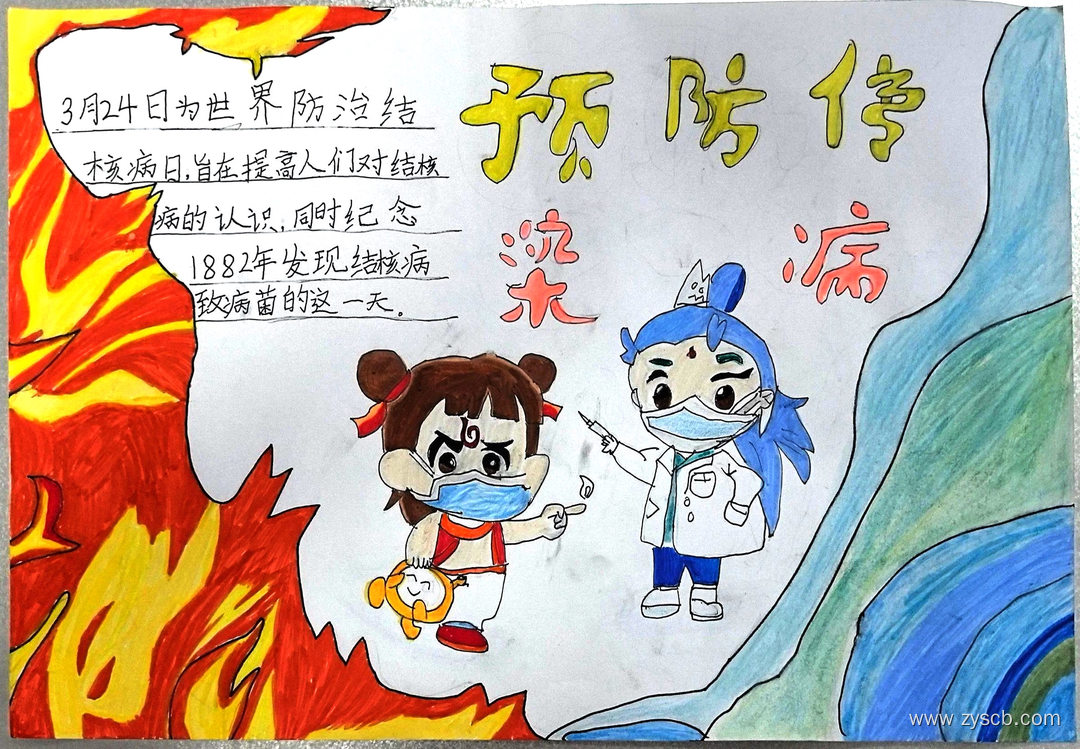 预防传
染病
3月24日为世界防治结
核病日,旨在提高人们对结核
病的认识,同时纪念
1882年发现结核病
致病菌的这一天.
www.zyscb.com